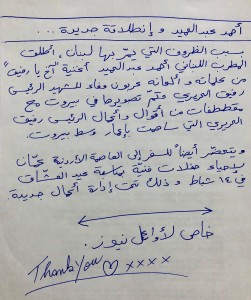 أحمد عبد الحميد و إنطلاقة جديدة ...
بسبب الظروف التي يمرّ بها لبنان، أطلق
المطرب اللبناني أحمد عبد الحميد أغنية "آخ يا رفيق"
من كلماته و ألحانه عربون وفاء للشهيد الرئيس
رفيق الحريري وتمّ تصويرها في بيروت مع
مقتطفات من أقوال وأعمال الرئيس رفيق
الحريري التي ساهمت بإعمار وسط بيروت.
ويتحضّر أيضاً للسفر إلى العاصمة الأردنية عمّان
لإحياء حفلات فنية بمناسبة عيد العشّاق
في ١٤ شباط و ذلك تحت إدارة أعمال جديدة.
خاص لأوائل نيوز.
Thank you ♡ xxxx